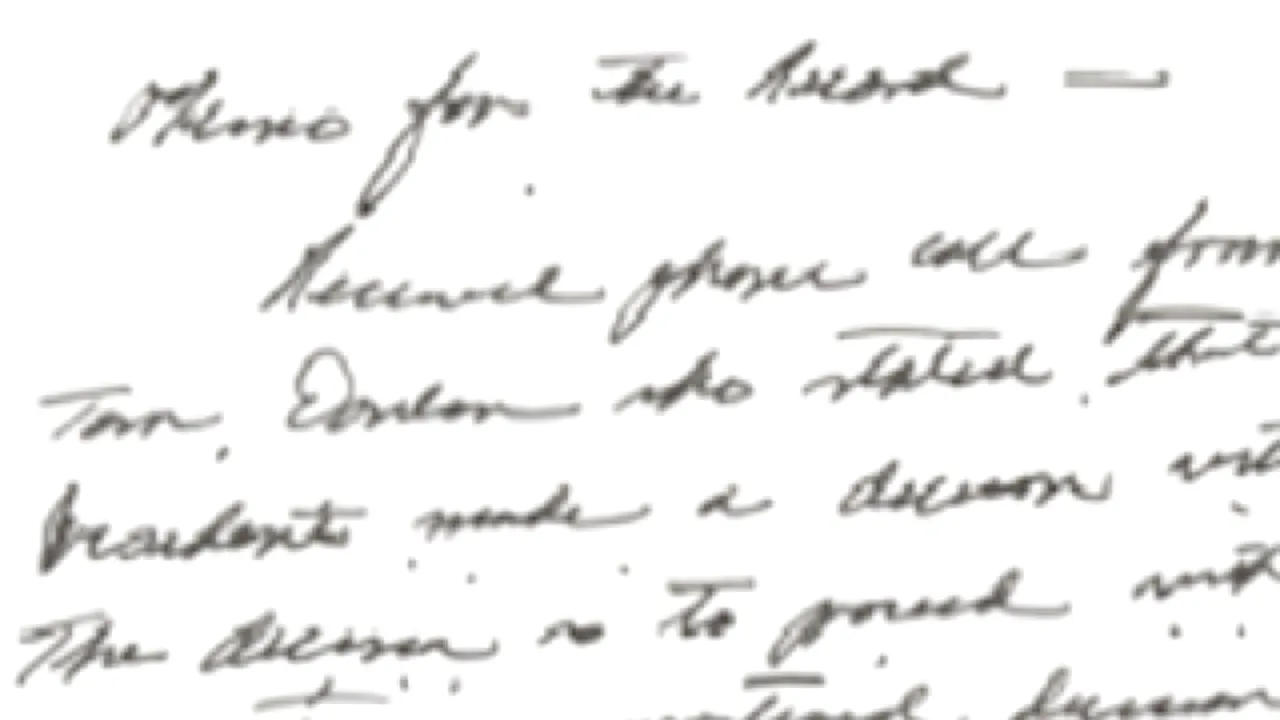 Memo for the Record —
Received phone call from
Tom Donlon who stated that
President made a decision
The decision is to proceed with